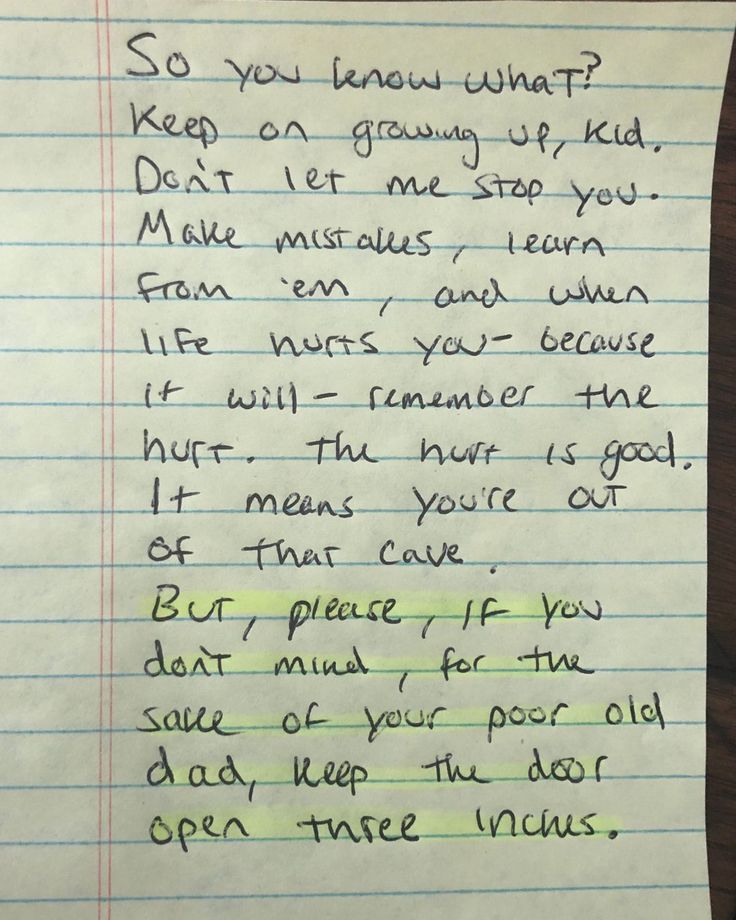 So you know what?
Keep on growing up, kid.
Don't let me stop you.
Make mistakes, learn
from 'em, and when
life hurts you- because
it will - remember the
hurt. The hurt is good.
It means you're out
of that cave.
But, please, if you
don't mind, for the
sake of your poor old
dad, keep the door
open three inches.